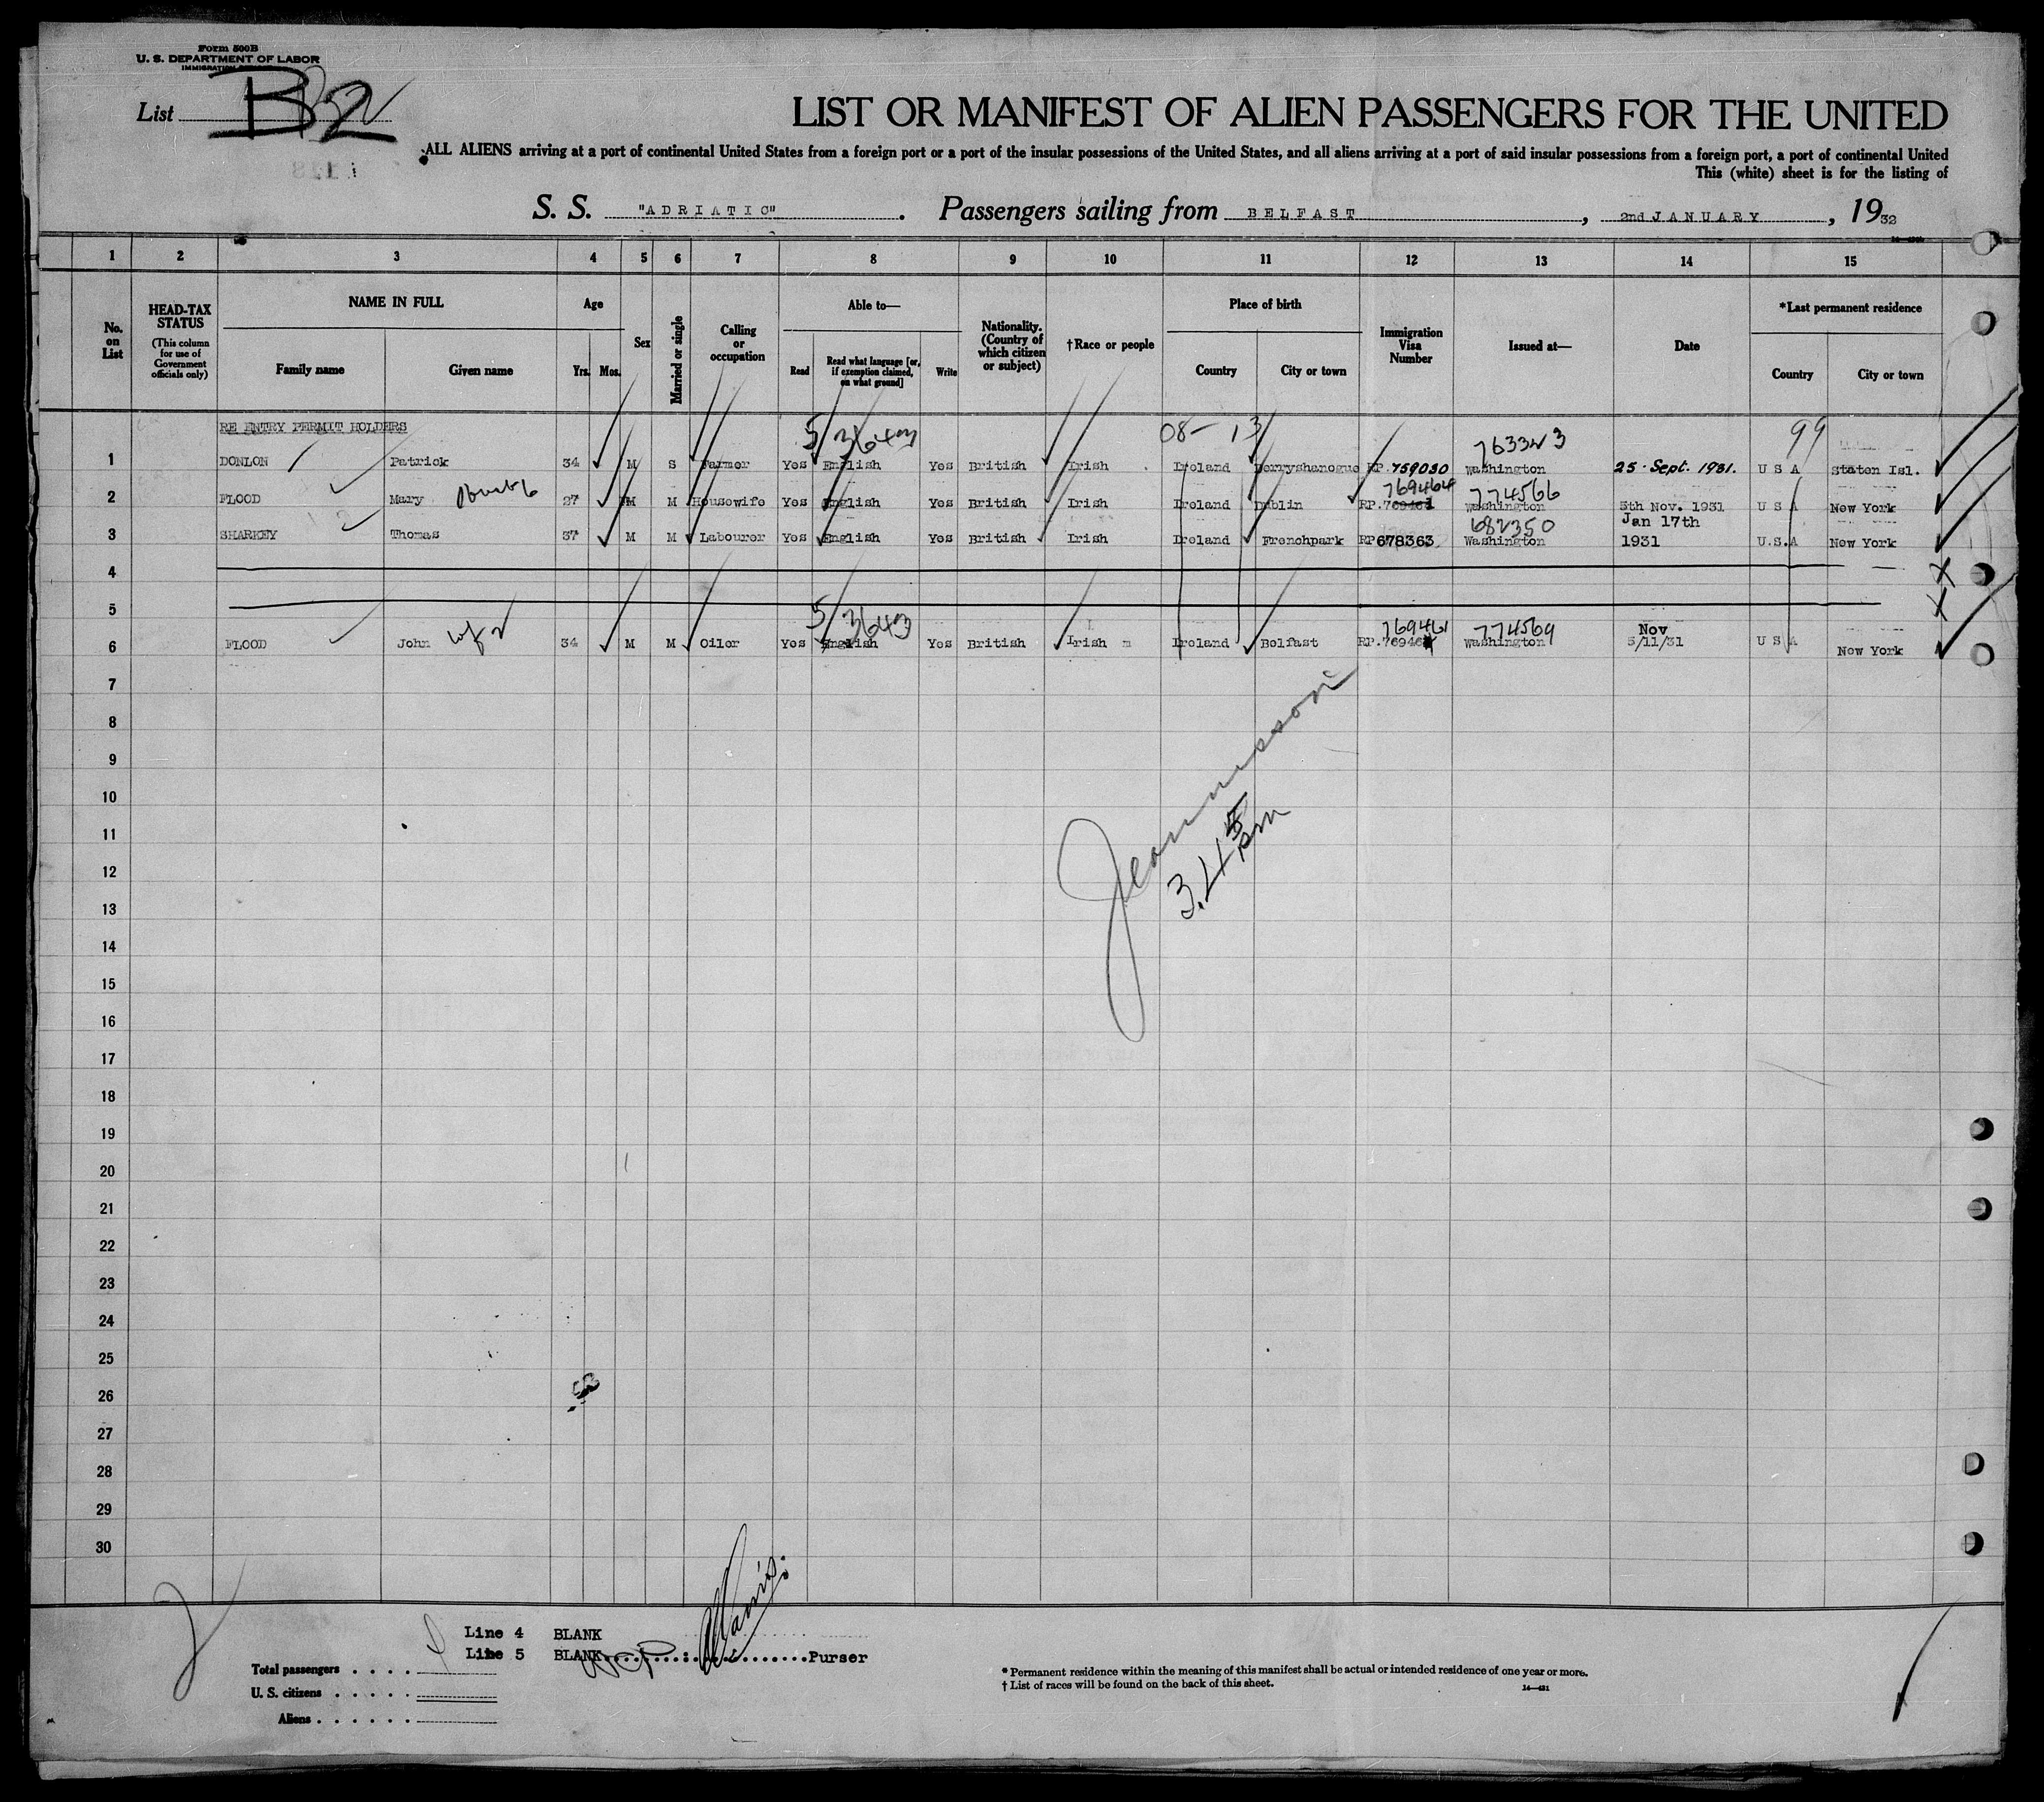 Form 500B
U. S. DEPARTMENT OF LABOR
IMMIGRATION
List B 2
LIST OR MANIFEST OF ALIEN PASSENGERS FOR THE UNITED
ALL ALIENS arriving at a port of continental United States from a foreign port or a port of the insular possessions of the United States, and all aliens arriving at a port of said insular possessions from a foreign port, a port of continental United
This (white) sheet is for the listing of
S. S. "ADRIATIC". Passengers sailing from BELFAST, 2nd JANUARY, 1932
1 2 3 4 5 6 7 8 9 10 11 12 13 14 15
No. on List
HEAD-TAX STATUS (This column for use of Government officials only)
NAME IN FULL
Family name Given name
Age
Yrs. Mos.
Sex
Married or single
Calling or occupation
Able to—
Read Read what language [or, if exemption claimed, on what ground] Write
Nationality. (Country of which citizen or subject)
†Race or people
Place of birth
Country City or town
Immigration Visa Number
Issued at—
Date
*Last permanent residence
Country City or town
RE ENTRY PERMIT HOLDERS 5/3643 08- 13 99
763323
1 DONLON Patrick 34 M S Farmer Yes English Yes British Irish Ireland Derryshanogue RP.759030 Washington 25 Sept. 1931. U S A Staten Isl.
769464 774566
2 FLOOD Mary 27 M M Housewife Yes English Yes British Irish Ireland Dublin RP. Washington 5th Nov. 1931 U S A New York
682350 Jan 17th
3 SHARKEY Thomas 37 M M Labourer Yes English Yes British Irish Ireland Frenchpark RP678363 Washington 1931 U.S.A New York
4
5
5/3643 769461 774569 Nov
6 FLOOD John wf 2 34 M M Oiler Yes English Yes British Irish m Ireland Belfast RP.76946 Washington 5/11/31 U S A New York
7
8
9
10
11
12
13
14
15
16
17
18
19
20
21
22
23
24
25
26
27
28
29
30
3.45 pm
Line 4 BLANK
Line 5 BLANK
Purser
Total passengers
U. S. citizens
Aliens
* Permanent residence within the meaning of this manifest shall be actual or intended residence of one year or more.
† List of races will be found on the back of this sheet.